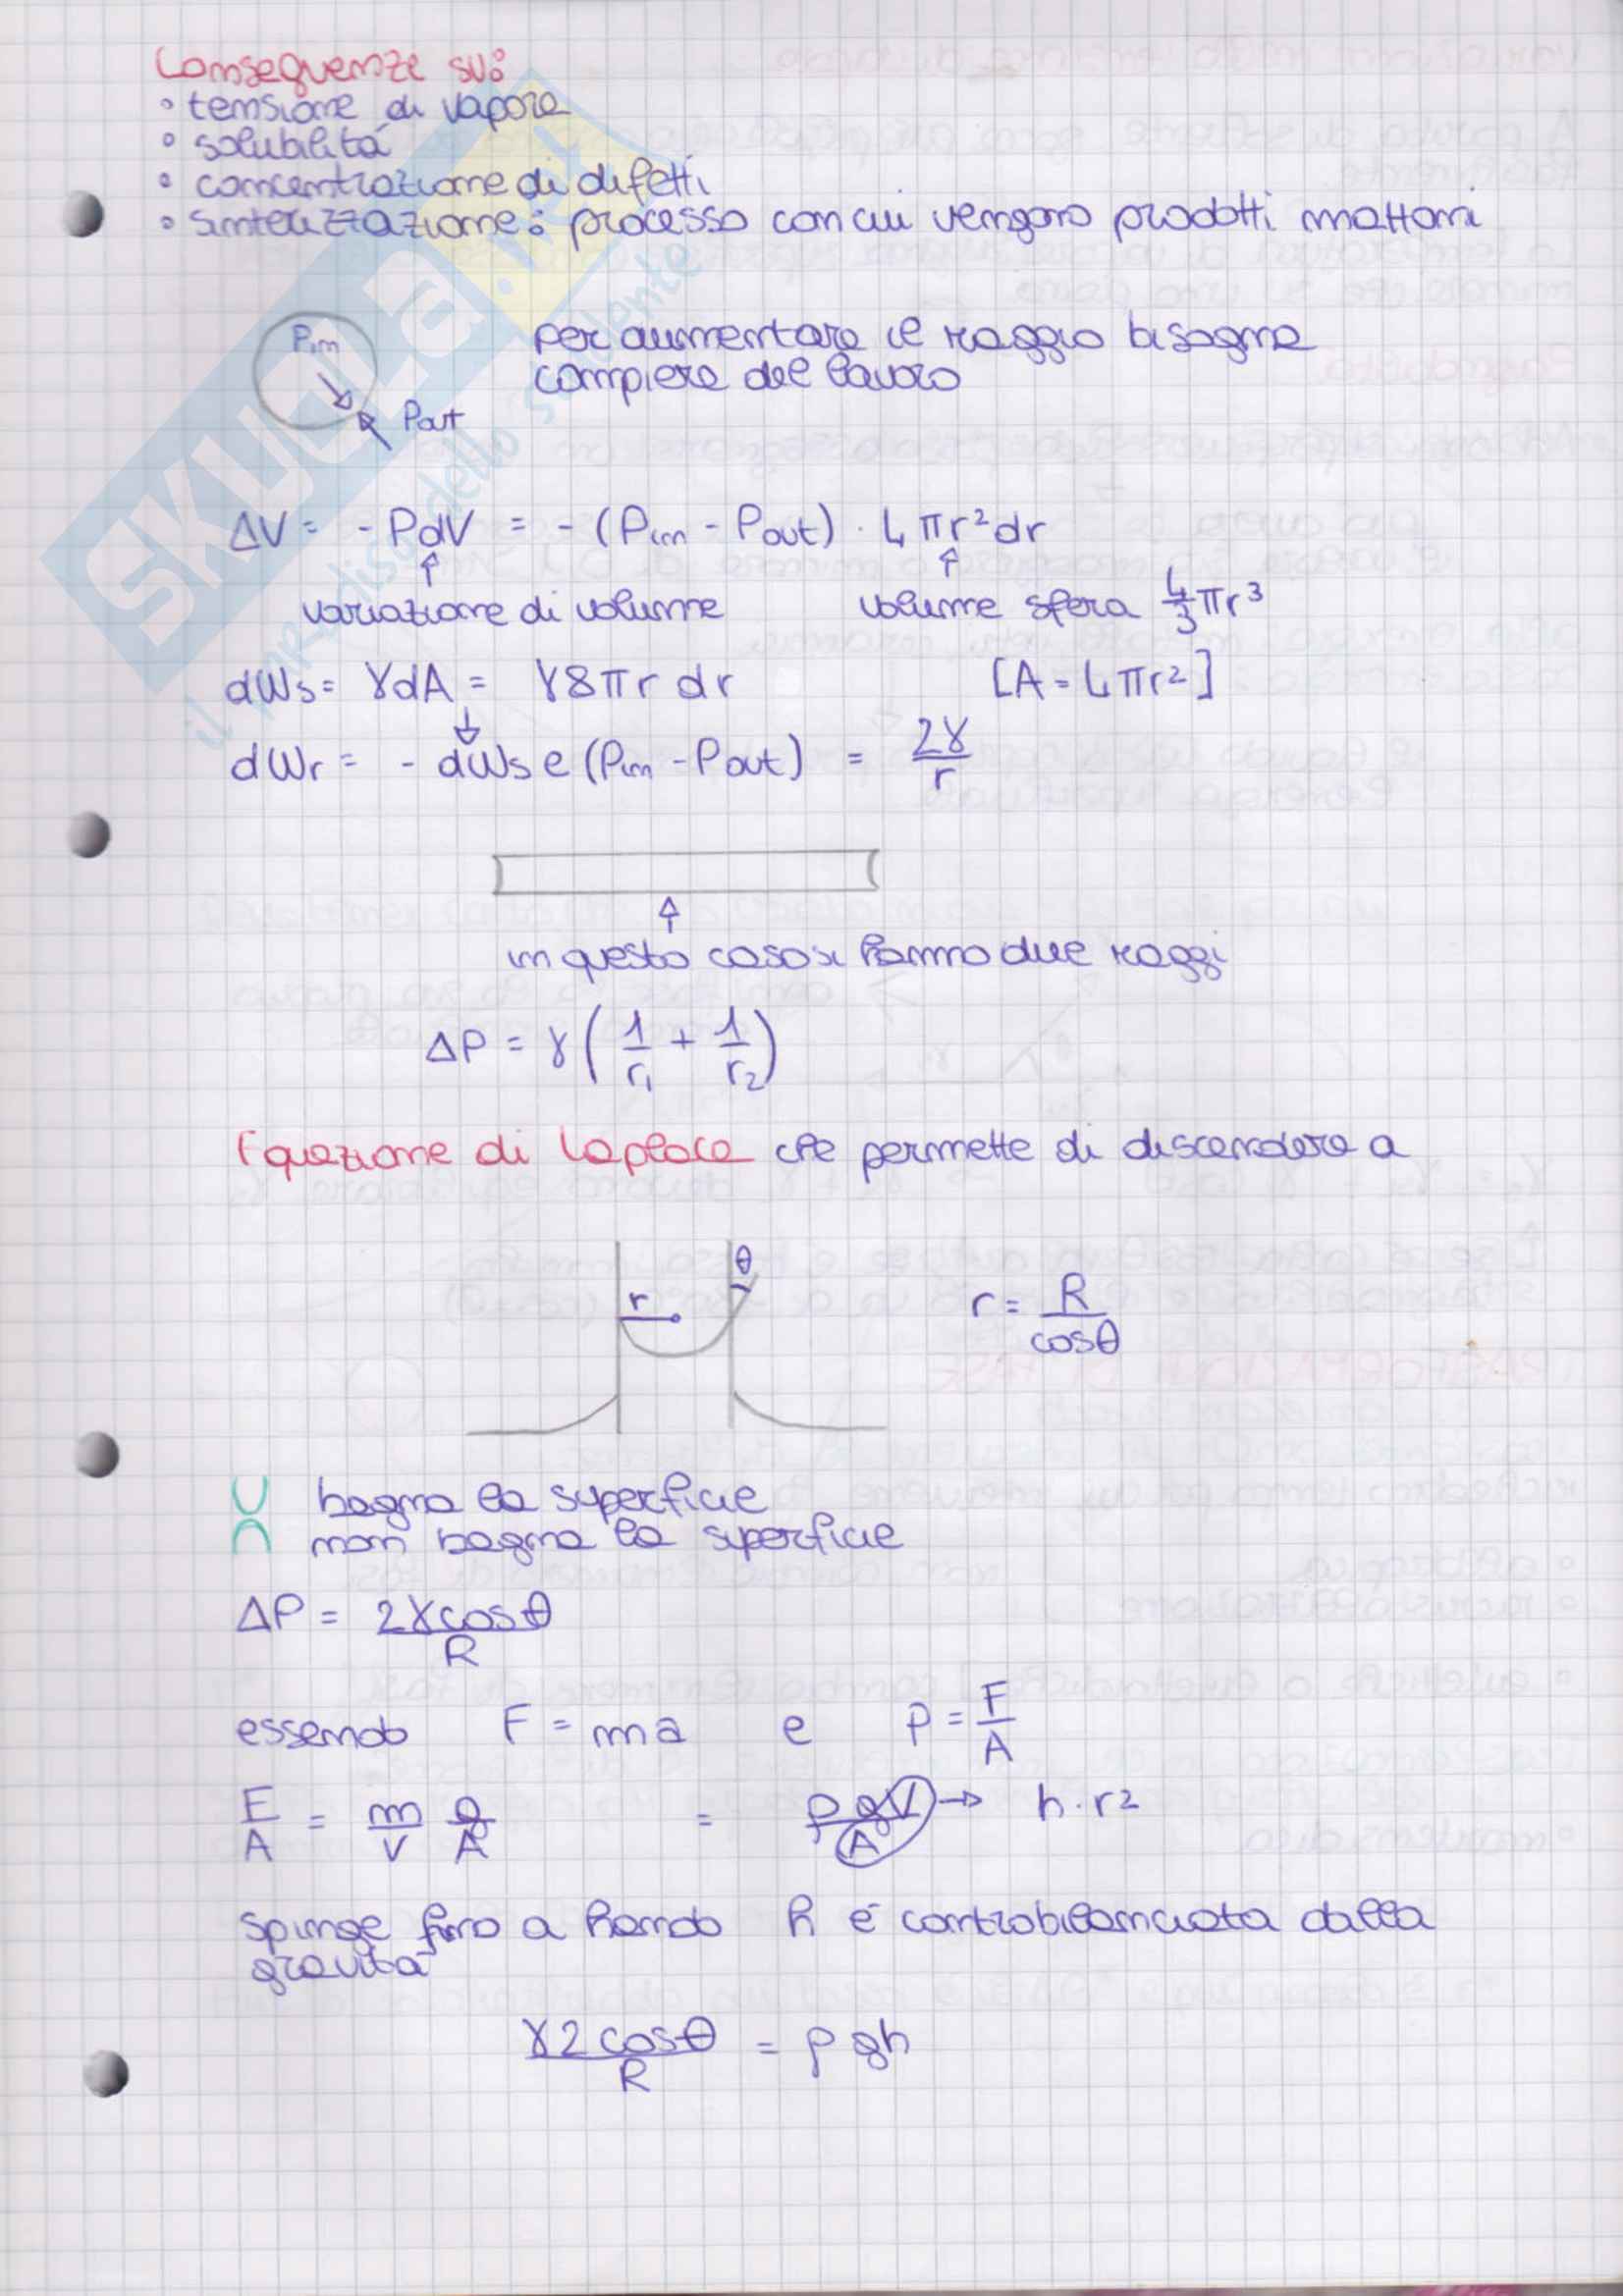 Conseguenze su:
• tensione di vapore
• solubilità
• concentrazione di difetti
• sinterizzazione: processo con cui vengono prodotti mattoni
Pin
Pout
per aumentare il raggio bisogna
compiere del lavoro
ΔV = - PdV = - (Pin - Pout) · 4πr² dr
variazione di volume
volume sfera 4/3 πr³
dWs = γdA = γ8πr dr [A = 4πr²]
dWr = - dWs e (Pin - Pout) = 2γ/r
in questo caso si hanno due raggi
ΔP = γ(1/r₁ + 1/r₂)
Equazione di Laplace che permette di discendere a
r
θ
r = R/cosθ
bagna la superficie
non bagna la superficie
ΔP = 2γcosθ/R
essendo F = ma e P = F/A
F/A = m/V g/A = ρgV/A → h·r²
spinge fino a quando h é controbilanciata dalla
gravità
γ2cosθ/R = ρgh
SKUOLA.net
il paradiso dello studente